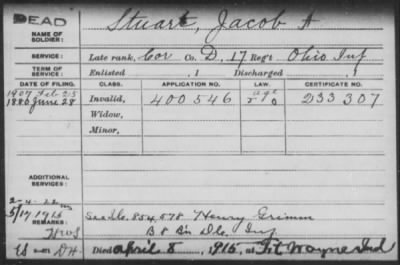 DEAD
NAME OF SOLDIER: Stuart, Jacob A
SERVICE: Late rank, Cor Co. D, 17 Reg't Ohio Inf
TERM OF SERVICE: Enlisted , 1 Discharged , 1
DATE OF FILING. CLASS. APPLICATION NO. LAW. CERTIFICATE NO.
1907 Feb 25 age
1880 June 28 Invalid, 400546 233307
Widow,
Minor,
ADDITIONAL SERVICES:
5/17 1915 See Sc. 854,578 Henry Grimm
B 8 Ohio Inf
Died April 8, 1915, at Ft Wayne Ind